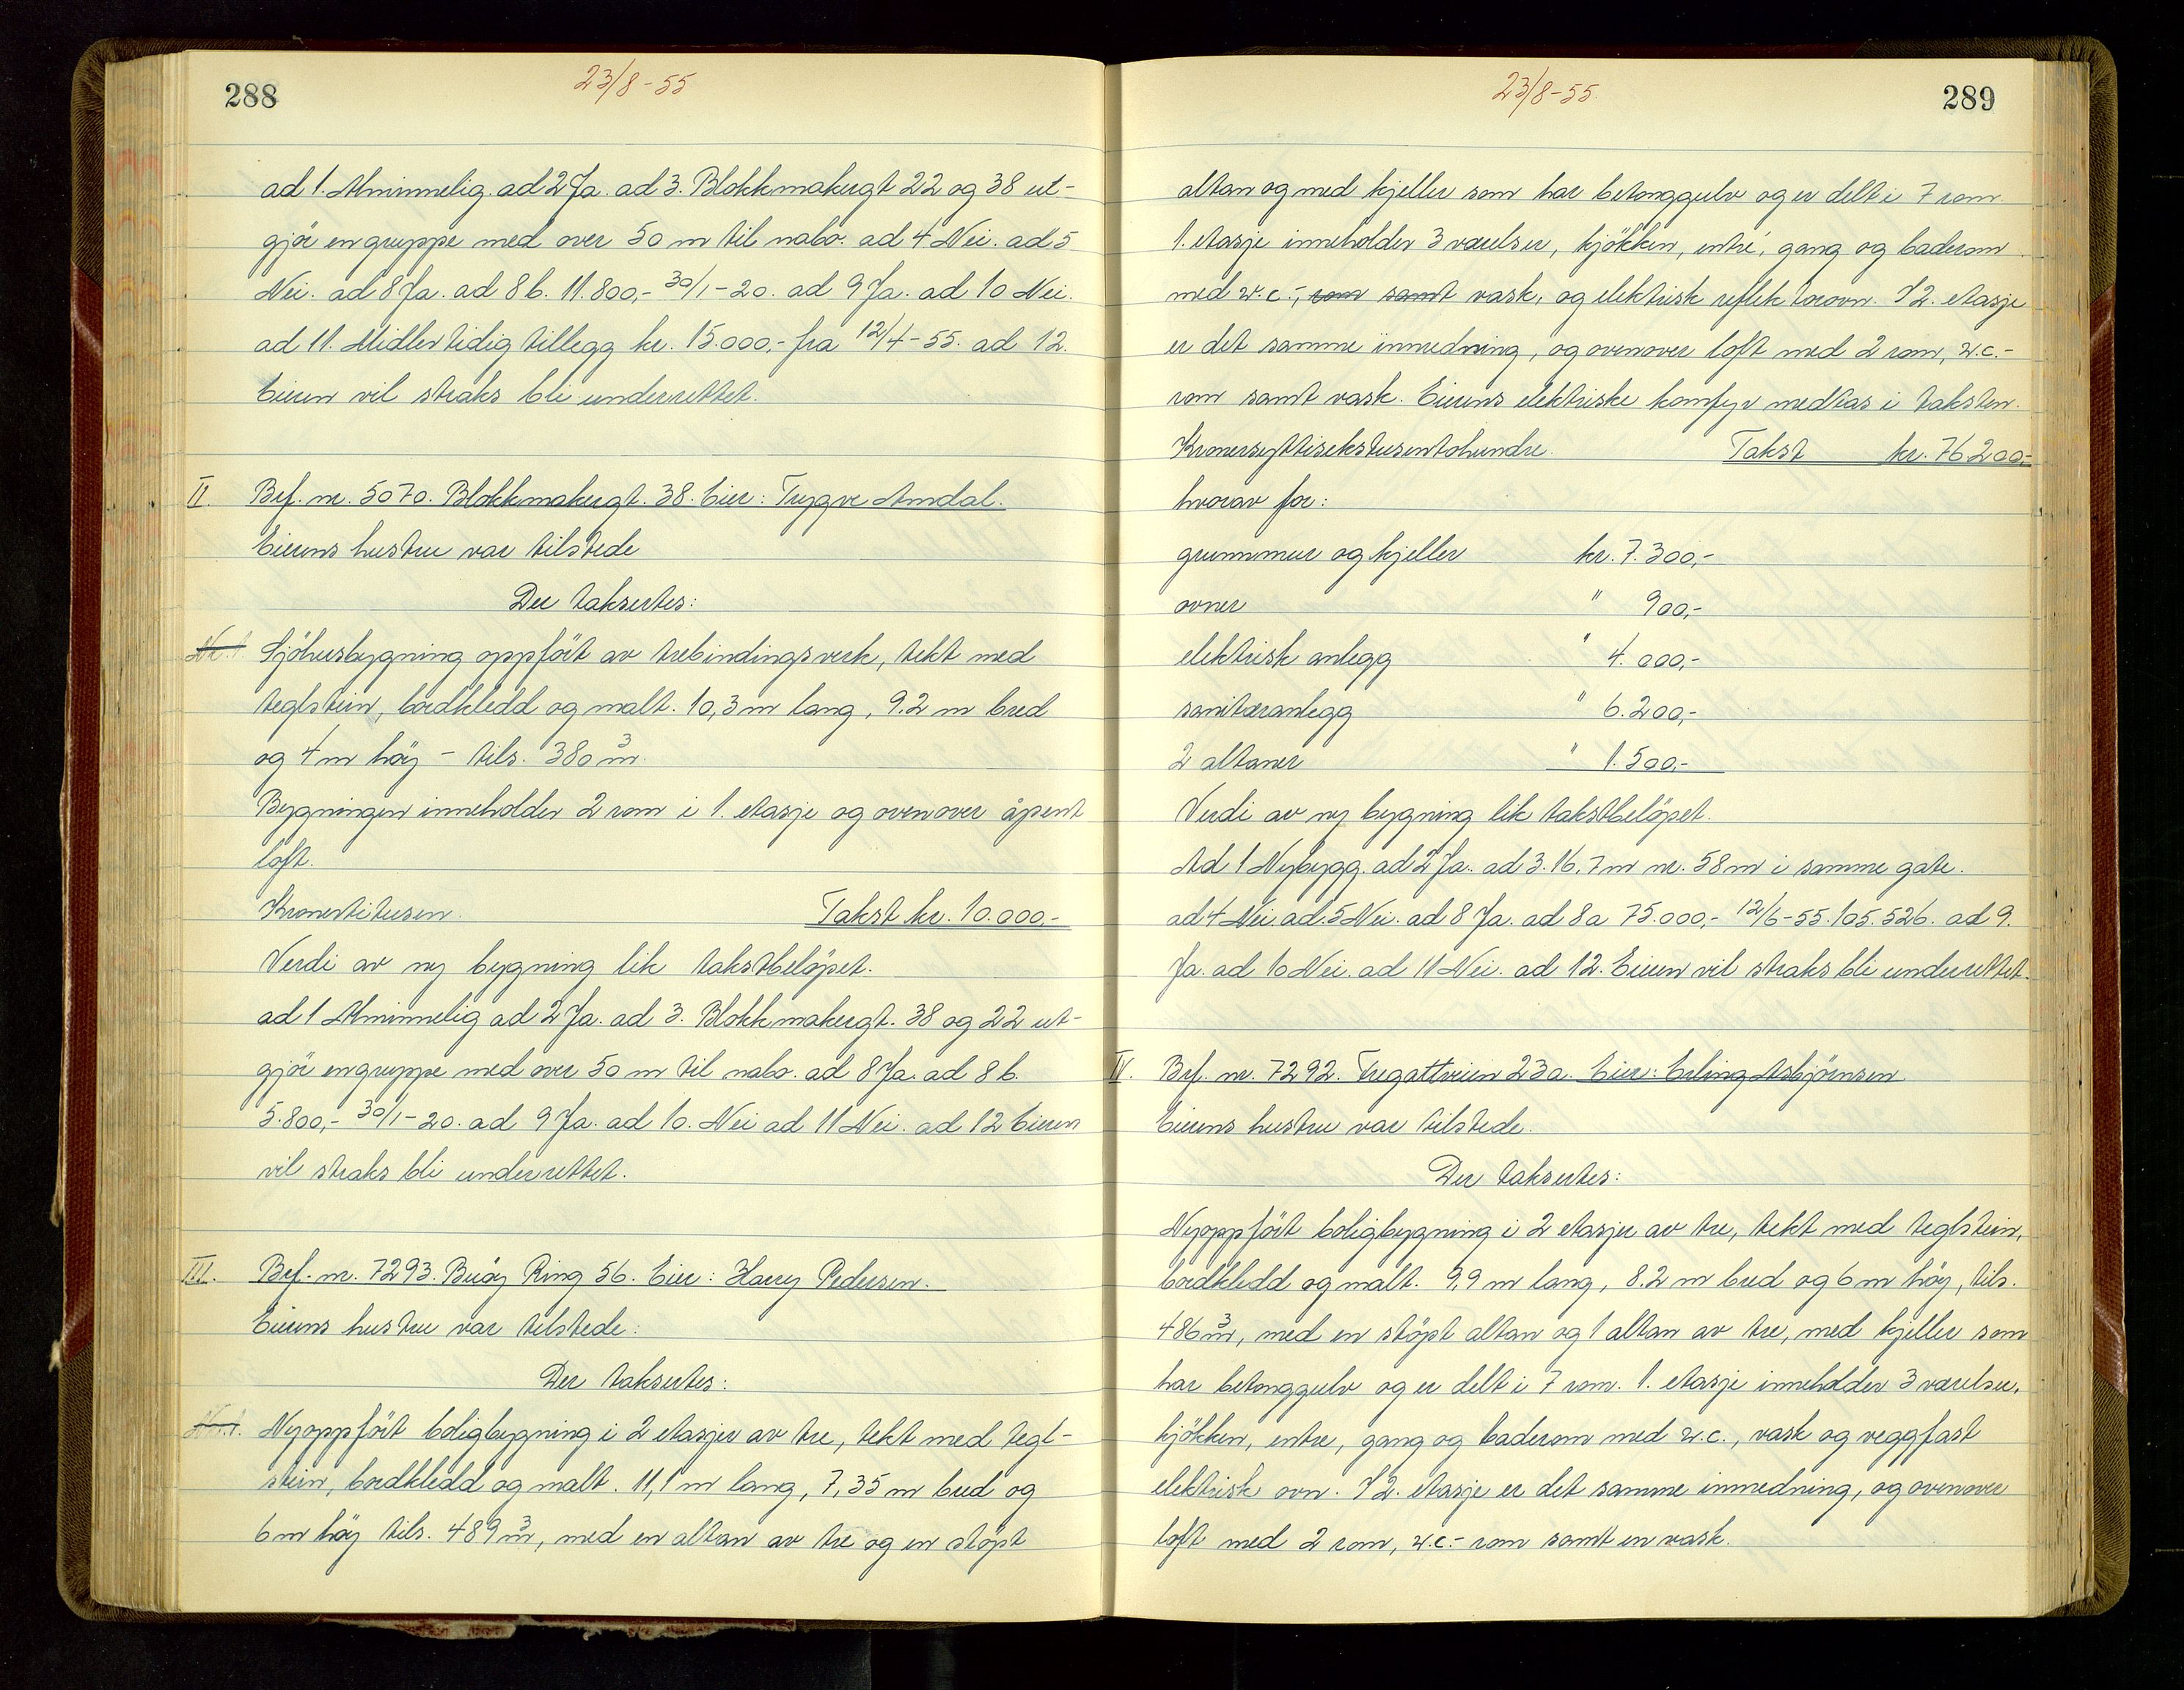 288
23/8-55
ad 1. Alminnelig. ad 2 Ja. ad 3. Blokkmakergt 22 og 38 ut-
gjör en gruppe med over 50 m til nabo. ad 4 Nei. ad 5
Nei. ad 8 Ja. ad 8 b. 11.800,- 30/1-20. ad 9 Ja. ad 10 Nei.
ad 11. Midlertidig tillegg kr. 15.000,- fra 12/4-55. ad 12.
Eieren vil straks bli underrettet.
II. Brf. nr. 5070. Blokkmakergt. 38. Eier: Trygve Amdal.
Eierens hustru var tilstede
Der taksertes:
Nr. 1. Sjöhusbygning oppfört av trebindingsverk, tekt med
teglstein, bordkledd og malt. 10,3 m lang, 9.2 m bred
og 4 m höy - tils. 380 m3.
Bygningen inneholder 2 rom i 1. etasje og ovenover åpent
loft.
Kronertitusen. Takst kr. 10.000,-
Verdi av ny bygning lik takstbelöpet.
ad 1 Alminnelig ad 2 Ja. ad 3. Blokkmakergt. 38 og 22 ut-
gjör en gruppe med over 50 m til nabo. ad 8 Ja. ad 8 b.
5.800,- 30/1-20. ad 9 Ja. ad 10. Nei ad 11 Nei. ad 12 Eieren
vil straks bli underrettet.
III. Brf. nr. 7293. Buöy Ring 56. Eier: Harry Pedersen.
Eierens hustru var tilstede:
Der taksertes:
Nr. 1. Nyoppfört boligbygning i 2 etasjer av tre, tekt med tegl-
stein, bordkledd og malt. 11,1 m lang, 7,35 m bred og
6 m höy tils. 489 m3, med en altan av tre og en stöpt
23/8-55.
289
altan og med kjeller som har betonggulv og er delt i 7 rom.
1. etasje inneholder 3 værelser, kjökken, entré, gang og baderom
med w.c.-, rom samt vask, og elektrisk reflektorovn. I 2. etasje
er det samme innredning, og ovenover loft med 2 rom, w.c.-
rom samt vask. Eierens elektriske komfyr medtas i taksten.
Kronersyttisekstusentohundre. Takst kr. 76200,-
hvorav for:
grunnmur og kjeller kr. 7.300,-
ovner " 900,-
elektrisk anlegg " 4.000,-
sanitæranlegg " 6.200,-
2 altaner " 1.500,-
Verdi av ny bygning lik takstbelöpet.
Ad 1 Nybygg. ad 2 Ja. ad 3. 16,7 m nr. 58 m i samme gate.
ad 4 Nei. ad. 5 Nei. ad 8 Ja. ad 8a 75.000,- 12/6-55. 105.526. ad 9.
Ja. ad 10 Nei. ad 11 Nei. ad 12. Eieren vil straks bli underrettet.
IV. Brf. nr. 7292. Fregattveien 23a. Eier: Erling Asbjörnsen
Eierens hustru var tilstede.
Der taksertes:
Nyoppfört boligbygning i 2 etasjer av tre, tekt med teglstein,
bordkledd og malt. 9,9 m lang, 8.2 m bred og 6 m höy, tils.
486 m3, med en stöpt altan og 1 altan av tre, med kjeller som
har betonggulv og er delt i 7 rom. 1. etasje inneholder 3 værelser,
kjökken, entre, gang og baderom med w.c., vask og veggfast
elektrisk ovn. I 2. etasje er det samme innredning, og ovenover
loft med 2 rom, w.c.- rom samt en vask.